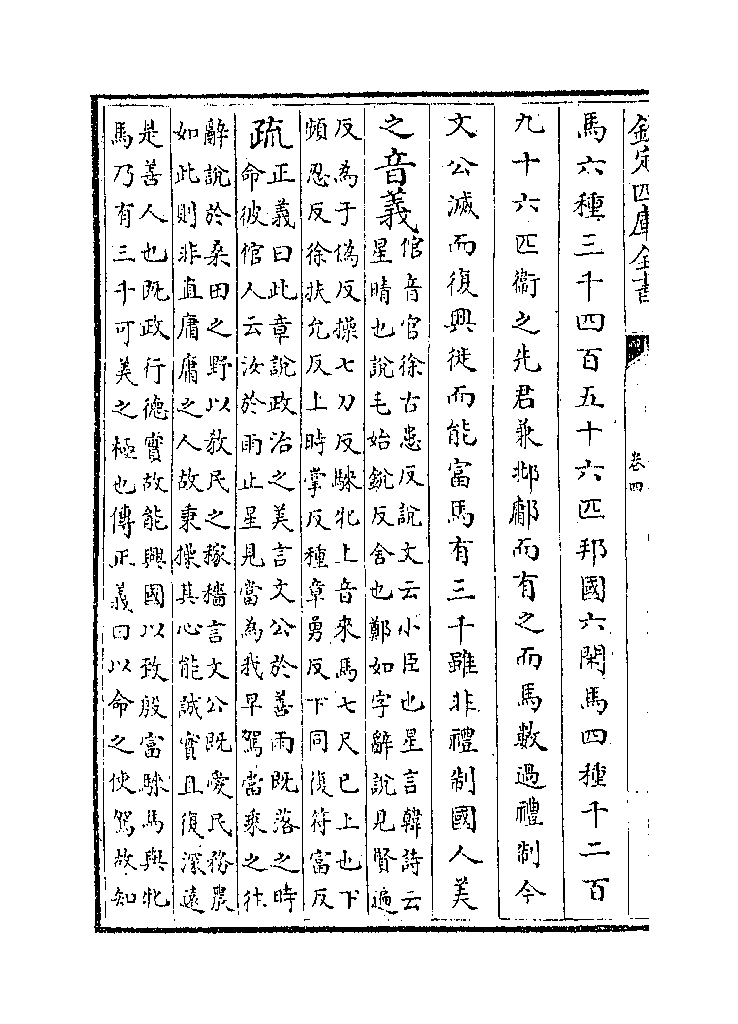 欽定四庫全書
卷四
馬六種三千四百五十六匹邦國六閑馬四種千二百
九十六匹衞之先君兼邶鄘而有之而馬數過禮制今
文公滅而復興徙而能富馬有三千雖非禮制國人美
之音義倌音官徐古患反說文云小臣也星言韓詩云
星晴也說毛始銳反舍也鄭如字辭說見賢遍
反為于偽反操七刀反騋牝上音來馬七尺已上也下
頻忍反徐扶允反上時掌反種章勇反下同復符富反
疏正義曰此章說政治之美言文公於善雨既落之時
命彼倌人云汝於雨止星見當為我早駕當乘之往
辭說於桑田之野以教民之稼穡言文公既愛民務農
如此則非直庸庸之人故秉操其心能誠實且復深遠
是善人也既政行德實故能興國以致殷富騋馬與牝
馬乃有三千可美之極也傳正義曰以命之使駕故知